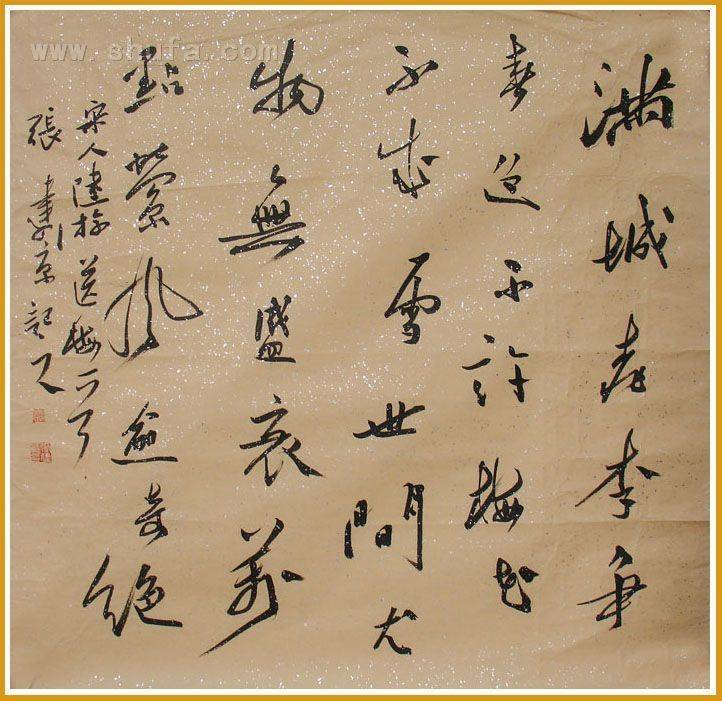 www.shufa.com
滿城桃李爭
春色不許梅花
不成雪世間尤
物無盛衰萬
點縈風愈奇絕
宋人陸游送梅
張